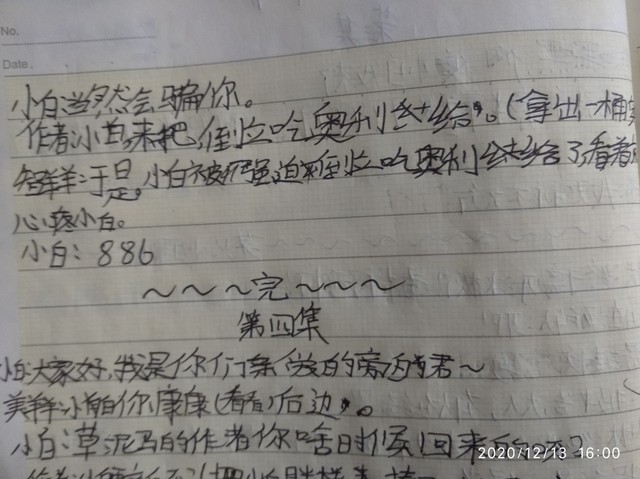 No.
Date.
小白:当然会骗你。
作者:小白,来把,倒立吃奥利给。(拿出一桶
于是,小白被强迫倒立吃奥利给了,看着
心疼小白。
小白:886
～～～完～～～
第四集
小白:大家好,我是你们亲爱的旁白君～
美羊:小白你康康(看看)后边。
小白:草泥马的作者你啥时候回来的呀?
2020/12/13 16:00